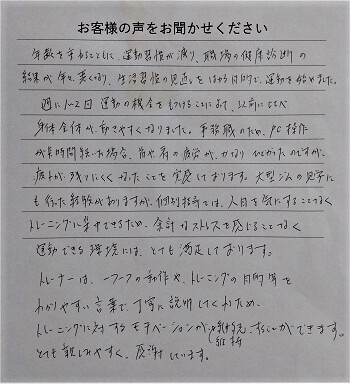 お客様の声をお聞かせください
年齢を重ねるとともに、運動習慣が減り、職場の健康診断の
結果が年々悪くなり、生活習慣の見直しをはかる目的で、運動を始めました。
週に1〜2回 運動の機会をもうけることにより、以前に比べ
身体全体が、動きやすくなりました。事務職のため、PC操作
が長時間続いた場合、首や肩の疲労が、かなりひどかったのですが、
疲れが残りにくくなったことを実感しております。大型ジムの見学に
も行った経験がありますが、個別指導では、人目を気にすることなく
トレーニングに集中できるため、余計なストレスを感じることなく
運動できる環境には、とても満足しております。
トレーナーは、一つ一つの動作や、トレーニングの目的等を
わかりやすい言葉で、丁寧に説明してくれるため、
トレーニングに対するモチベーションが継続維持することができます。
とても親しみやすく、感謝しています。